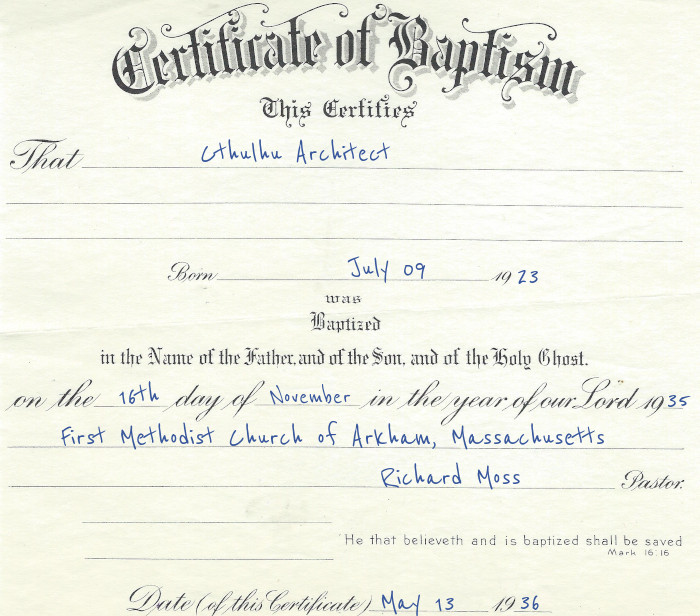 Certificate of Baptism
This Certifies
That Cthulhu Architect
Born July 09 1923
was
Baptized
in the Name of the Father, and of the Son, and of the Holy Ghost.
on the 16th day of November in the year of our Lord 1935
First Methodist Church of Arkham, Massachusetts
Richard Moss Pastor.
"He that believeth and is baptized shall be saved
Mark 16:16
Date (of this Certificate) May 13 1936